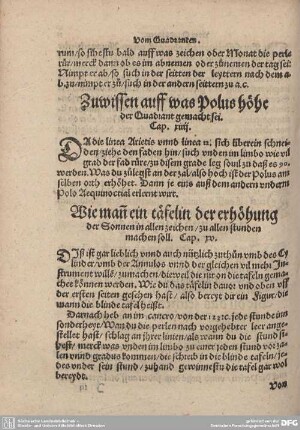 Vom Quadranten.
rum/so sihestu bald auff was zeichen oder Monat die perle
rür/merck dann ob es im abnemen oder zunemen der tag sei
Nimpt er ab/so such in der seitten der leyttern nach dem a
b.zu/nimpt er zů/such in der andern seittern zu a.c.
Zuwissen auff was Polus höhe
der Quadrant gemacht sei.
Cap. xiiij.
DA die linea Arietis vnnd linea 12. sich überein schnei-
den/ziehe den faden hin/such vnden im limbo wie vil
grad der fad rüre/zu disem grade leg souil daß es 90.
werden. Was du zůlegst an der zal/also hoch ist der Polus am
selben orth erhöhet. Dann je eins auß dem andern vnderm
Polo Aequinoctial erlernt wirt.
Wie man ein täfelin der erhöhung
der Sonnen in allen zeichen/zu allen stunden
machen soll. Cap. xv.
DIß ist gar lieblich vnnd auch nützlich zuthůn vmb des Cy
linder/vmb die Annulos vnnd der gleichen vil mehr In-
strument willen/zumachen/dieweil die nit on die täfeln gema-
chet können werden. Wie du das täfelin dauor vnd oben vff
der ersten seiten gesehen hast/also bereyt dir ein Figur/die
mann die blinde tafel heißt.
Darnach heb an im cancro/von der 12
jede stund inn
sonderheyt/Wan du die perlen nach vorgehebter leer ange-
stellet hast/schlag an ihrer linien/als wann du die stund sů-
chest/merck was vnden im limbo zu einer jeden stund vor za-
len vnnd gradus kommen/die schreib in die blinde tafeln/je-
des vnder sein stund/zuhand gewinnestu die tafel gar wol
bereydt.
Von